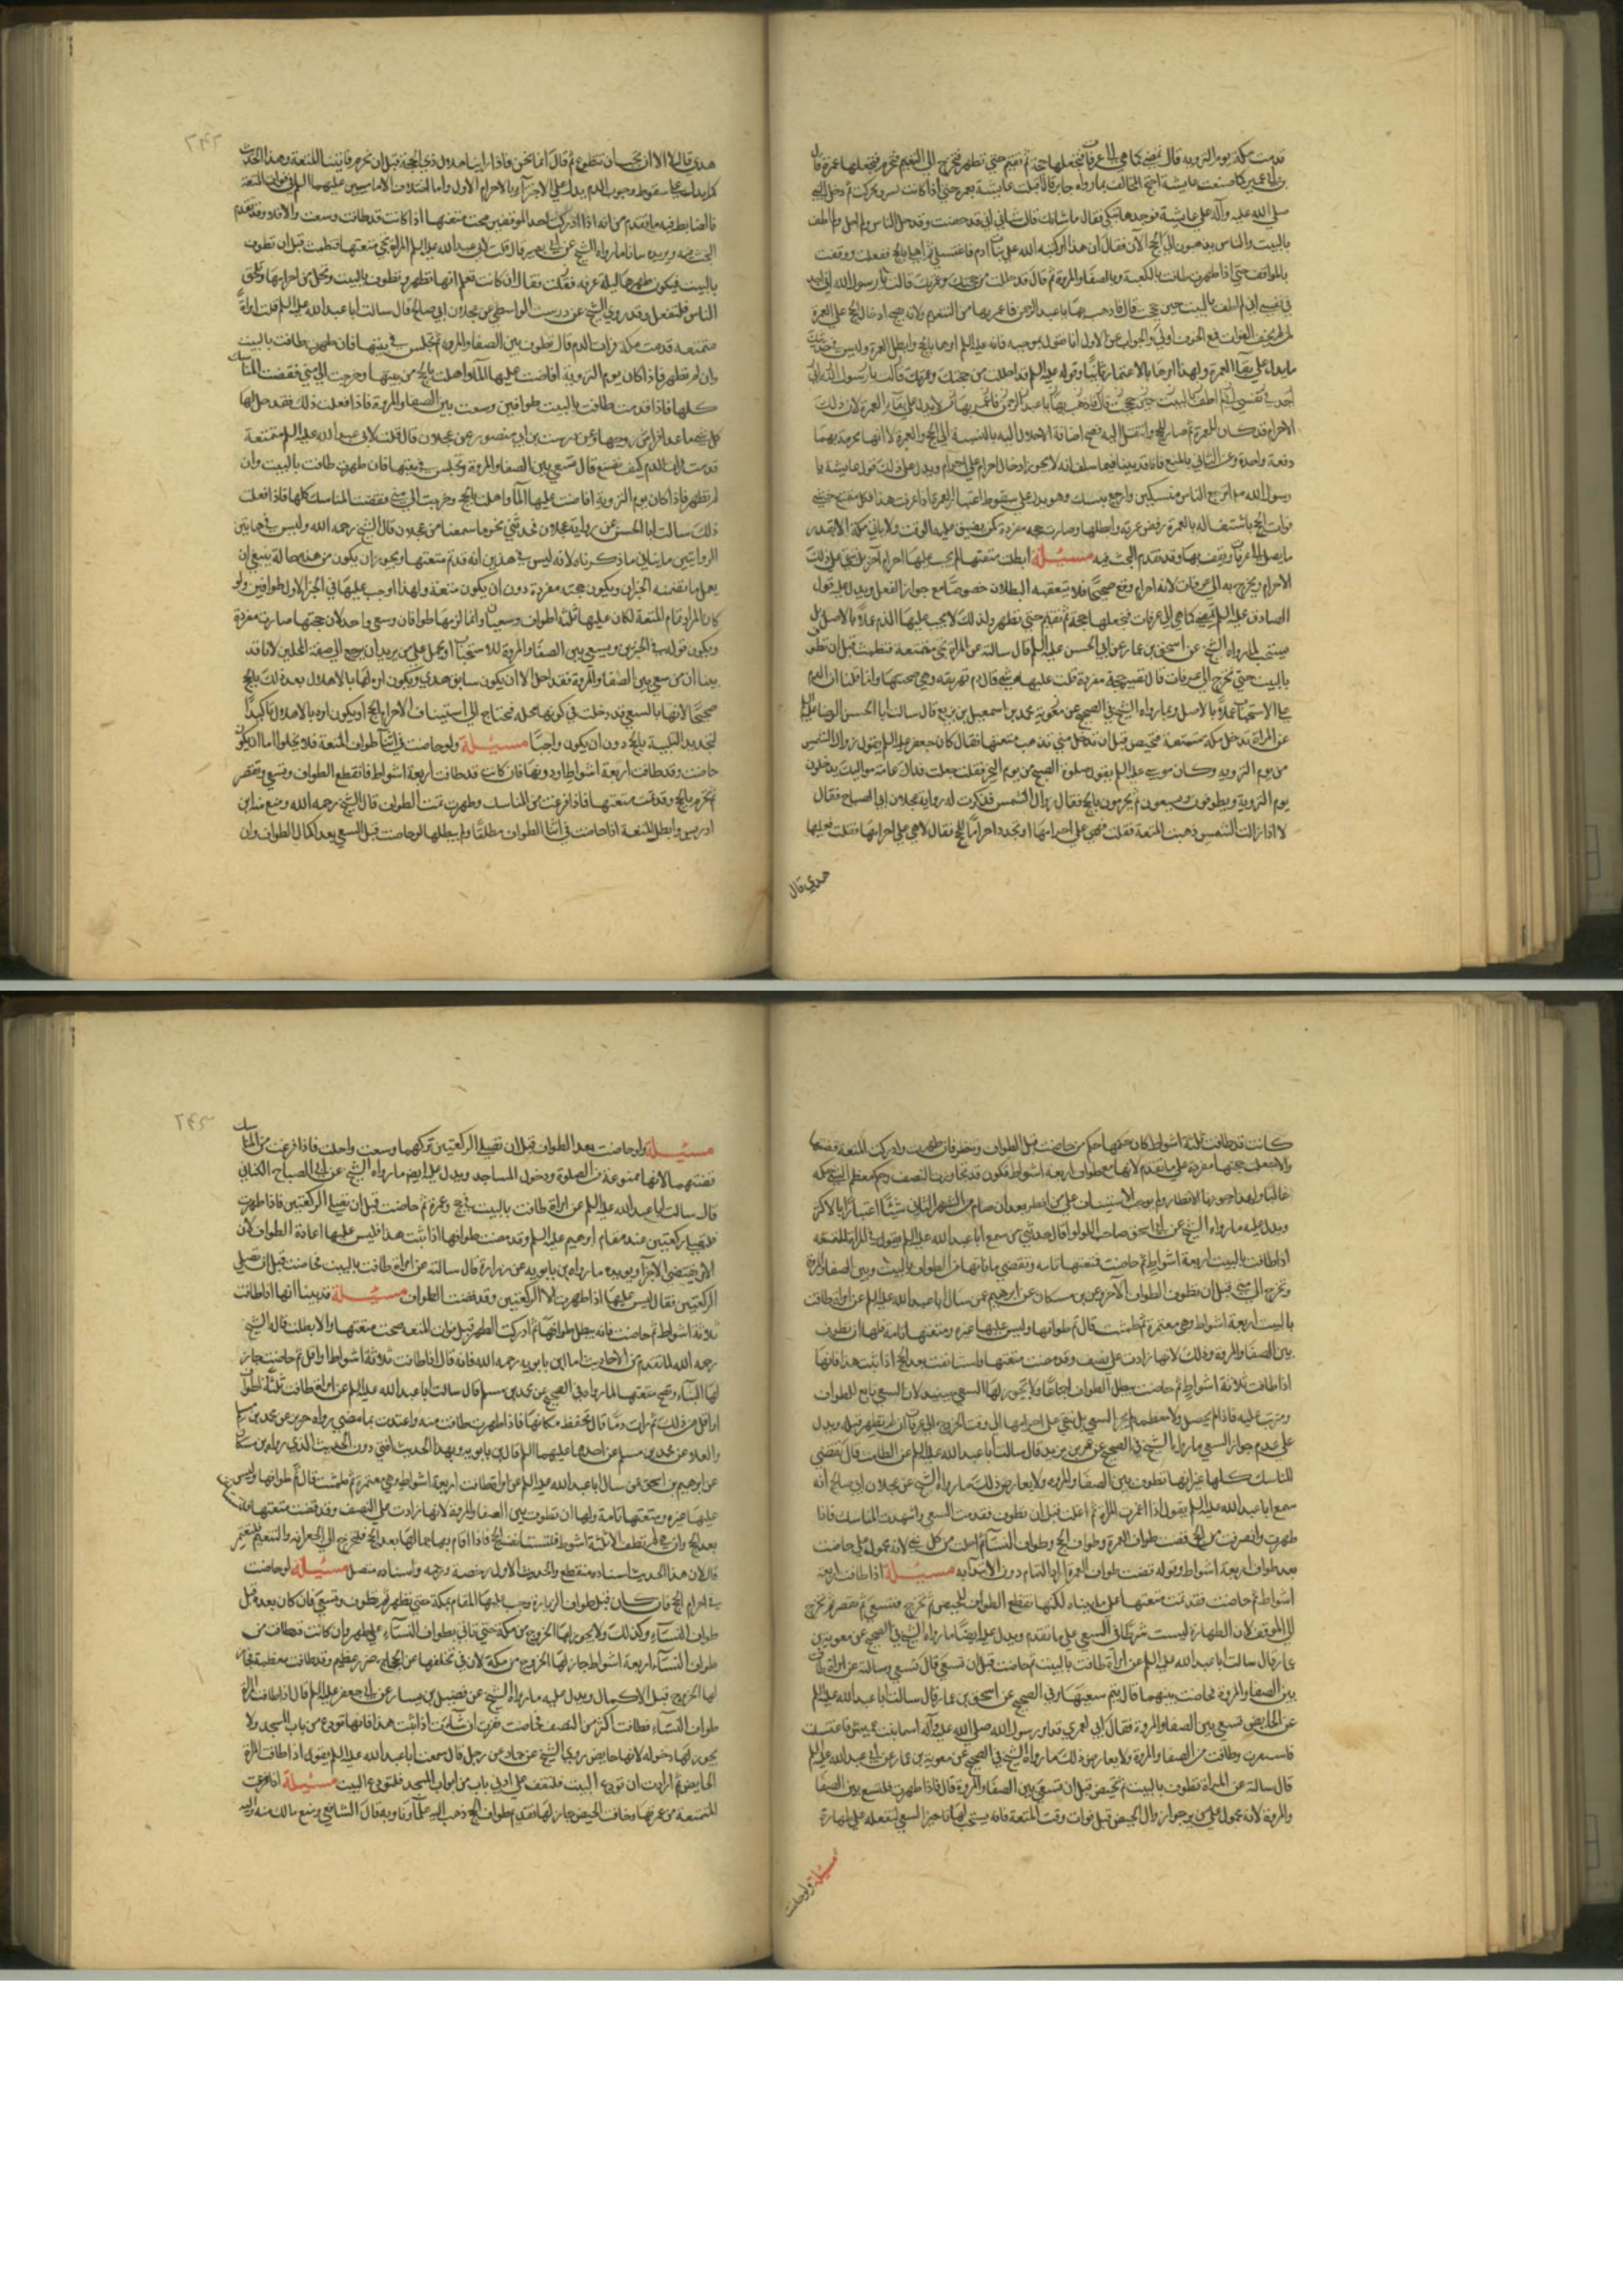 قدمت مكة يوم التروية قال تمضي كما هي الى عرفات فتجعلها حجة ثم تقيم حتى تطهر فتخرج الى التنعيم فتحرم فتجعلها عمرة قال
بن ابي عمير كما صنعت عايشة احتج المخالف بما رواه جابر قال اقبلت عايشة بعمرة حتى اذا كانت بسرف عركت ثم دخل النبي
صلى الله عليه وآله على عايشة فوجدها تبكي فقال ما شانك قالت شاني اني قد حضت وقد حل الناس ولم احل ولم اطف
بالبيت والناس يذهبون الى الحج الآن فقال ان هذا امر كتبه الله على بنات آدم فاغتسلي ثم اهلي بالحج ففعلت ووقفت
بالمواقف حتى اذا طهرت طافت بالكعبة وبالصفا والمروة ثم قال قد حللت من حجك وعمرتك قالت يا رسول الله اني اجد
في نفسي اني لم اطف بالبيت حين حججت قال فاذهب بها يا عبد الرحمن فاعمرها من التنعيم ولانه يصح ادخال الحج على العمرة
ما يدل على بقاء العمرة ولهذا امرها بالاعتمار ثانيا وقوله عليه السلم قد احللت من حجتك وعمرتك قالت يا رسول الله اني
اجد في نفسي اني لم اطف بالبيت حين حججت قال فاذهب بها يا عبد الرحمن فاعمرها لا يدل على بقاء العمرة لان ذلك
الاحرام قد كان للعمرة ثم صار للحج وانتقل اليه فصح اضافة الاحلال اليه بالنسبة الى الحج والعمرة لا انها محرمة بهما
دفعة واحدة وعن الثاني بالمنع فانا قد بينا فيما سلف انه لا يجوز ادخال احرام على احرام ويدل على ذلك قول عايشة يا
رسول الله يرجع الناس بنسكين وارجع بنسك وهو يدل على سقوط اعتبار العمرة اذا عرفت هذا فكل متمتع خشي
فوات الحج باشتغاله بالعمرة رفض عمرته وابطلها وصارت حجه مفردة كمن يضيق عليه الوقت ولا ياتي مكة الا بقدر
ما يصل الى عرفات ويقف بها وقد تقدم البحث فيه مسئلة اذا بطلت متعتها لم يجب عليها احرام آخر بل تبقى على ذلك
الاحرام وتخرج به الى عرفات لانه احرام وقع صحيحا فلا يتعقبه البطلان خصوصا مع جواز الفعل ويدل عليه قول
الصادق عليه السلم تمضي كما هي الى عرفات فتجعلها حجة ثم تقيم حتى تطهر ولذلك لا يجب عليها الدم عملا بالاصل بل
يستحب لما رواه الشيخ عن اسحق بن عمار عن ابي الحسن عليه السلم قال سالته عن المراة تجي متمتعة فتطمث قبل ان تطوف
بالبيت حتى تخرج الى عرفات قال تصير حجة مفردة قلت عليها شي قال دم تهريقه وهي اضحيتها وانما قلنا ان الدم
على الاستحباب عملا بالاصل وبما رواه الشيخ في الصحيح عن محمد بن اسمعيل بن بزيع قال سالت ابا الحسن الرضا عليه السلم
عن المراة تدخل مكة متمتعة فتحيض قبل ان تحل متى تذهب متعتها فقال كان جعفر عليه السلم يقول زوال الشمس
من يوم التروية وكان موسى عليه السلم يقول صلوة الصبح من يوم التروية فقلت جعلت فداك عامة مواليك يدخلون
يوم التروية ويطوفون ويسعون ثم يحرمون بالحج فقال زوال الشمس فذكرت له رواية عجلان ابي الصباح فقال
لا اذا زالت الشمس ذهبت المتعة فقلت فهي على احرامها او تجدد احرامها للحج فقال لا هي على احرامها فقلت فعليها
هدي قال
٢٤٢
هدي قال لا الا ان تحب ان تتطوع ثم قال اما نحن فاذا راينا هلال ذي الحجة قبل ان نحرم فاتتنا المتعة وهذا الحديث
كما يدل على سقوط وجوب الدم يدل على الاجزآء بالاحرام الاول واما اختلاف الامامين عليهما السلم في فوات المتعة
فالضابط فيه ما تقدم من انه اذا ادركت احد الموقفين صحت متعتها اذا كانت قد طافت وسعت والا فلا وقد تقدم
البحث فيه ويزيده بيانا ما رواه الشيخ عن ابي بصير قال قلت لابي عبد الله عليه السلم المراة تجي متمتعة فتطمث قبل ان تطوف
بالبيت فيكون طهرها ليلة عرفة فقال ان كانت تعلم انها تطهر وتطوف بالبيت وتحل من احرامها وتلحق
الناس فلتفعل وقد روى الشيخ عن درست الواسطي عن عجلان ابي صالح قال سالت ابا عبد الله عليه السلم قلت امراة
متمتعة قدمت مكة فرات الدم قال تطوف بين الصفا والمروة ثم تجلس في بيتها فان طهرت طافت بالبيت
وان لم تطهر فاذا كان يوم التروية افاضت عليها المآء واهلت بالحج من بيتها وخرجت الى منى فقضت المناسك
كلها فاذا قدمت طافت بالبيت طوافين وسعت بين الصفا والمروة فاذا فعلت ذلك فقد حل لها
كل شي ما عدا فراش زوجها وعن درست بن ابي منصور عن عجلان قال قلت لابي عبد الله عليه السلم متمتعة
قدمت فرات الدم كيف تصنع قال تسعى بين الصفا والمروة وتجلس في بيتها فان طهرت طافت بالبيت وان
لم تطهر فاذا كان يوم التروية افاضت عليها المآء واهلت بالحج وخرجت الى منى فقضت المناسك كلها فاذا فعلت
ذلك سالت ابا الحسن عن رواية عجلان فحدثني نحو ما سمعنا من عجلان قال الشيخ رحمه الله وليس في هاتين
الروايتين ما ينافي ما ذكرناه لانه ليس في هذين انه قد تم متعتها ويجوز ان يكون من هذه حاله ينبغي ان
يعمل ما تضمنه الخبران ويكون حجته مفردة دون ان يكون متعة ولهذا اوجب عليها في الخبر الاول طوافين ولو
كان المراد تمام المتعة لكان عليها ثلثة اطواف وسعيان وانما لزمها طوافان وسعي واحد لان حجتها صارت مفردة
ويكون قوله في الخبرين ويسعى بين الصفا والمروة للاستحباب او يحمل على من يريد ان يرجع الى صفة المحلين لانا قد
بينا ان من سعى بين الصفا والمروة فقد احل الا ان يكون سايق هدي ويكون امره لها بالاهلال بعد ذلك بالحج
صحيحا لانها بالسعي قد دخلت في كونها محله فتحتاج الى استيناف الاحرام بالحج او يكون امره بالاهلال تاكيدا
لتجديد التلبية بالحج دون ان يكون واجبا مسئلة ولو حاضت في اثناء طواف المتعة فلا يخلوا اما ان يكون
حاضت وقد طافت اربعة اشواط او دونها فان كانت قد طافت اربعة اشواط فلتقطع الطواف وتسعى وتقصر
ثم تحرم بالحج وقد تمت متعتها فاذا فرغت من المناسك وطهرت تمت الطواف قال الشيخ رحمه الله ومنع منه ابن
ادريس وابطل المتعة اذا حاضت في اثناء الطواف مطلقا ولم يبطلها لو حاضت قبل السعي بعد اكمال الطواف وان
كانت قد طافت ثلثة اشواط كان حكمها حكم من حاضت قبل الطواف وتنظر فان طهرت وادركت المتعة فقضتها
والا جعلت حجتها مفردة على ما تقدم لانها مع طواف اربعة اشواط تكون قد تجاوزت النصف وحكم معظم الشي حكمه
ويدل عليه ما رواه الشيخ عن ابي اسحق صاحب اللولو قال حدثني من سمع ابا عبد الله عليه السلم يقول في المراة المتمتعة
اذا طافت بالبيت اربعة اشواط ثم حاضت فمتعتها تامه وتقضي ما فاتها من الطواف بالبيت وبين الصفا والمروة
وتخرج الى منى قبل ان تطوف الطواف الآخر وعن بن مسكان عن ابرهيم عمن سال ابا عبد الله عليه السلم عن امراة طافت
بالبيت اربعة اشواط وهي معتمرة ثم طمثت قال تتم طوافها وليس عليها غيره ومتعتها تامة فلها ان تطوف
بين الصفا والمروة وذلك لانها زادت على نصف وقد مضت متعتها ولتستانف بعد الحج اذا ثبت هذا فانها
اذا طافت ثلاثة اشواط ثم حاضت بطل الطواف اجماعا ولا يجوز لها السعي حينئذ لان السعي تابع للطواف
ومرتب عليه فاذا لم يحصل ولا معظمه لم يجز السعي بل تبقى على احرامها الى وقت الخروج الى عرفات ان لم تطهر قبله ويدل
على عدم جواز السعي ما رواه الشيخ في الصحيح عن عمر بن يزيد قال سالت ابا عبد الله عليه السلم عن الطامث قال تقضي
المناسك كلها غير انها لا تطوف بين الصفا والمروة ولا يعارض ذلك ما رواه الشيخ عن عجلان ابي صالح انه
سمع ابا عبد الله عليه السلم يقول اذا اعتمرت المراة ثم اعتلت قبل ان تطوف قدمت السعي وشهدت المناسك فاذا
طهرت وانصرفت من الحج قضت طواف العمرة وطواف الحج وطواف النسآء ثم احلت من كل شي لانه محمول على من حاضت
بعد طواف اربعة اشواط وقوله قضت طواف العمرة اراد التمام دون الابتدآء به مسئلة اذا طافت اربعة
اشواط ثم حاضت فقد تمت متعتها على ما بيناه لكنها تقطع الطواف للحيض ثم تخرج فتسعى ثم تقصر ثم تخرج
الى الموقف لان الطهارة ليست شرطا في السعي على ما تقدم ويدل عليه ايضا ما رواه الشيخ في الصحيح عن معوية بن
عمار قال سالت ابا عبد الله عليه السلم عن امراة طافت بالبيت ثم حاضت قبل ان تسعى قال تسعى وسالته عن امراة طافت
بين الصفا والمروة فحاضت بينهما قال تتم سعيها وفي الصحيح عن اسحق بن عمار قال سالت ابا عبد الله عليه السلم
عن الحايض تسعى بين الصفا والمروة فقال اي لعمري قد امر رسول الله صلى الله عليه وآله اسما بنت عميس فاغتسلت
فاستثفرت وطافت بين الصفا والمروة ولا يعارض ذلك ما رواه الشيخ في الصحيح عن معوية بن عمار عن ابي عبد الله عليه السلم
قال سالته عن المراة تطوف بالبيت ثم تحيض قبل ان تسعى بين الصفا والمروة قال فاذا طهرت فلتسع بين الصفا
والمروة لانه محمول على من يرجوا زوال الحيض قبل فوات وقت المتعة فانه يستحب لها تاخير السعي لتفعله على طهارة
مسئلة ولو حاضت
٢٤٣
مسئلة ولو حاضت بعد الطواف قبل ان تصلي الركعتين تركهما وسعت واحلت فاذا فرغت من المناسك
قضتهما لانها ممنوعة من الصلوة ودخول المساجد ويدل عليه ايضا ما رواه الشيخ عن ابي الصباح الكناني
قال سالت ابا عبد الله عليه السلم عن امراة طافت بالبيت في حج او عمرة ثم حاضت قبل ان تصلي الركعتين قال اذا طهرت
فلتصل ركعتين عند مقام ابرهيم عليه السلم وقد قضت طوافها اذا ثبت هذا فليس عليها اعادة الطواف لان
الامر يقتضي الاجزآء ويؤيده ما رواه بن بابويه عن زرارة قال سالته عن امراة طافت بالبيت فحاضت قبل ان تصلي
الركعتين فقال ليس عليها اذا طهرت الا الركعتين وقد قضت الطواف مسئلة قد بينا انها اذا طافت
ثلاثة اشواط ثم حاضت فانه يبطل طوافها ثم ان ادركت الطهر قبل فوات المتعة صحت متعتها والا بطلت قاله الشيخ
رحمه الله لما تقدم من الاحاديث اما ابن بابويه رحمه الله فانه قال اذا طافت ثلاثة اشواط او اقل ثم حاضت جاز
لها البنآء وتصح متعتها لما رواه في الصحيح عن محمد بن مسلم قال سالت ابا عبد الله عليه السلم عن امراة طافت ثلثة اطواف
او اقل من ذلك ثم رات دما قال تحفظ مكانها فاذا طهرت طافت منه واعتدت بما مضى رواه حريز عن محمد بن مسلم
والعلاء عن محمد بن مسلم عن احدهما عليهما السلم قال بن بابويه وبهذا الحديث افتي دون الحديث الذي رواه بن مسكان
عن ابرهيم بن اسحق عمن سال ابا عبد الله عليه السلم عن امراة طافت اربعة اشواط وهي معتمرة ثم طمثت قال تتم طوافها وليس
عليها غيره ومتعتها تامة ولها ان تطوف بين الصفا والمروة لانها زادت على النصف وقد قضت متعتها فلتستانف
بعد الحج وان هي لم تطف الا ثلثة اشواط فلتستانف الحج فاذا اقام بها جمالها بعد الحج فلتخرج الى الجعرانة او التنعيم فلتعتمر
قال لان هذا الحديث اسناده منقطع والحديث الاول رخصة ورحمه واسناده متصل مسئلة لو حاضت
في احرام الحج فان كان قبل طواف الزيارة وجب عليها المقام بمكة حتى تطهر ثم تطوف وتسعى فان كان بعده قبل
طواف النسآء فكذلك ولا يجوز لها الخروج من مكة حتى تاتي بطواف النسآء على طهر وان كانت قد طافت من
طواف النسآء اربعة اشواط جاز لها الخروج من مكة لان في تخلفها عن الحجاج ضرر عظيم وقد طافت معظمه فجاز
لها الخروج قبل الاكمال ويدل عليه ما رواه الشيخ عن فضيل بن يسار عن ابي جعفر عليه السلم قال اذا طافت المراة
طواف النسآء فطافت اكثر من النصف فحاضت نفرت ان شآءت اذا ثبت هذا فانها تودع من باب المسجد ولا
يجوز لها دخوله لانها حايض روى الشيخ عن حماد عن رجل قال سمعت ابا عبد الله عليه السلم يقول اذا طافت المراة
الحايض ثم ارادت ان تودع البيت فلتقف على ادنى باب من ابواب المسجد فلتودع البيت مسئلة اذا فرغت
المتمتعة من عمرتها وخافت الحيض جاز لها تقديم طواف الحج ذهب اليه علمآؤنا وبه قال الشافعي ومنع مالك منه